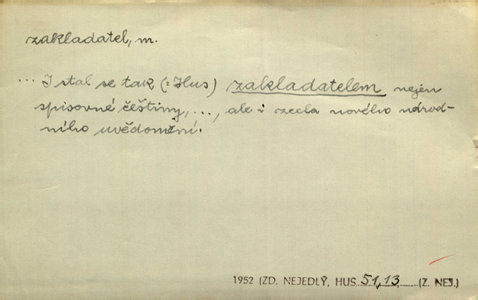 zakladatel, m.
... I stal se tak (: Hus) zakladatelem nejen
spisovné češtiny, ..., ale i zcela nového národ-
ního uvědomění.
1952 (ZD. NEJEDLÝ, HUS 51,13 (Z. NEJ.)